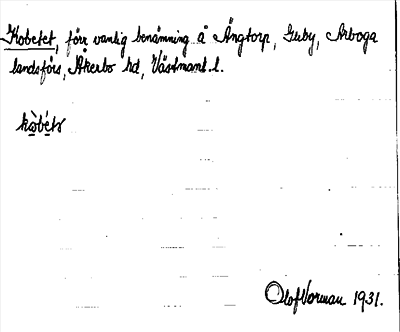 Kobetet, förr vanlig benämning å Ängtorp, Guby, Arboga
landsförs, Åkerbo hd, Västmanl. l.
kòbétə
Olof Vorman 1931.